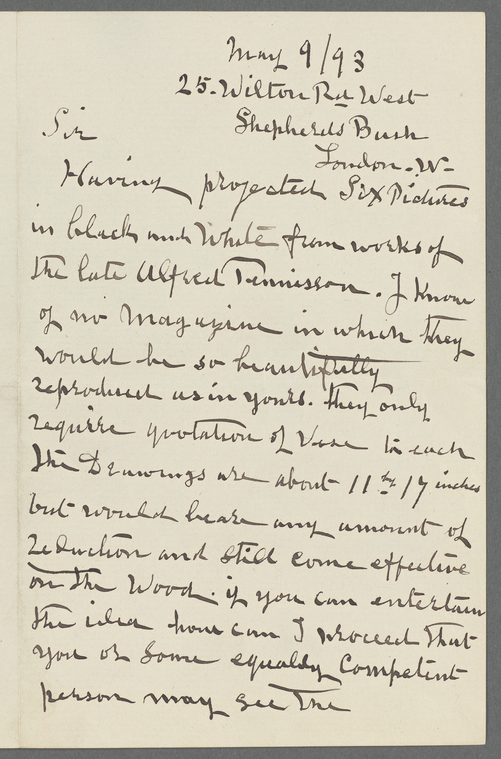 May 9/93
25. Wilton Rd West
Shepherds Bush
London. W-
Sir
Having projected Six Pictures
in black and White from works of
the late Alfred Tennisson. I Know
of no Magazine in which they
would be so beautifully
reproduced as in yours. they only
require quotation of Verse to each
the Drawings are about 11 by 17 inches
but would beare any amount of
reduction and still come effective
on the Wood. if you can entertain
the idea how can I proceed that
you or some equally Competent
person may see the